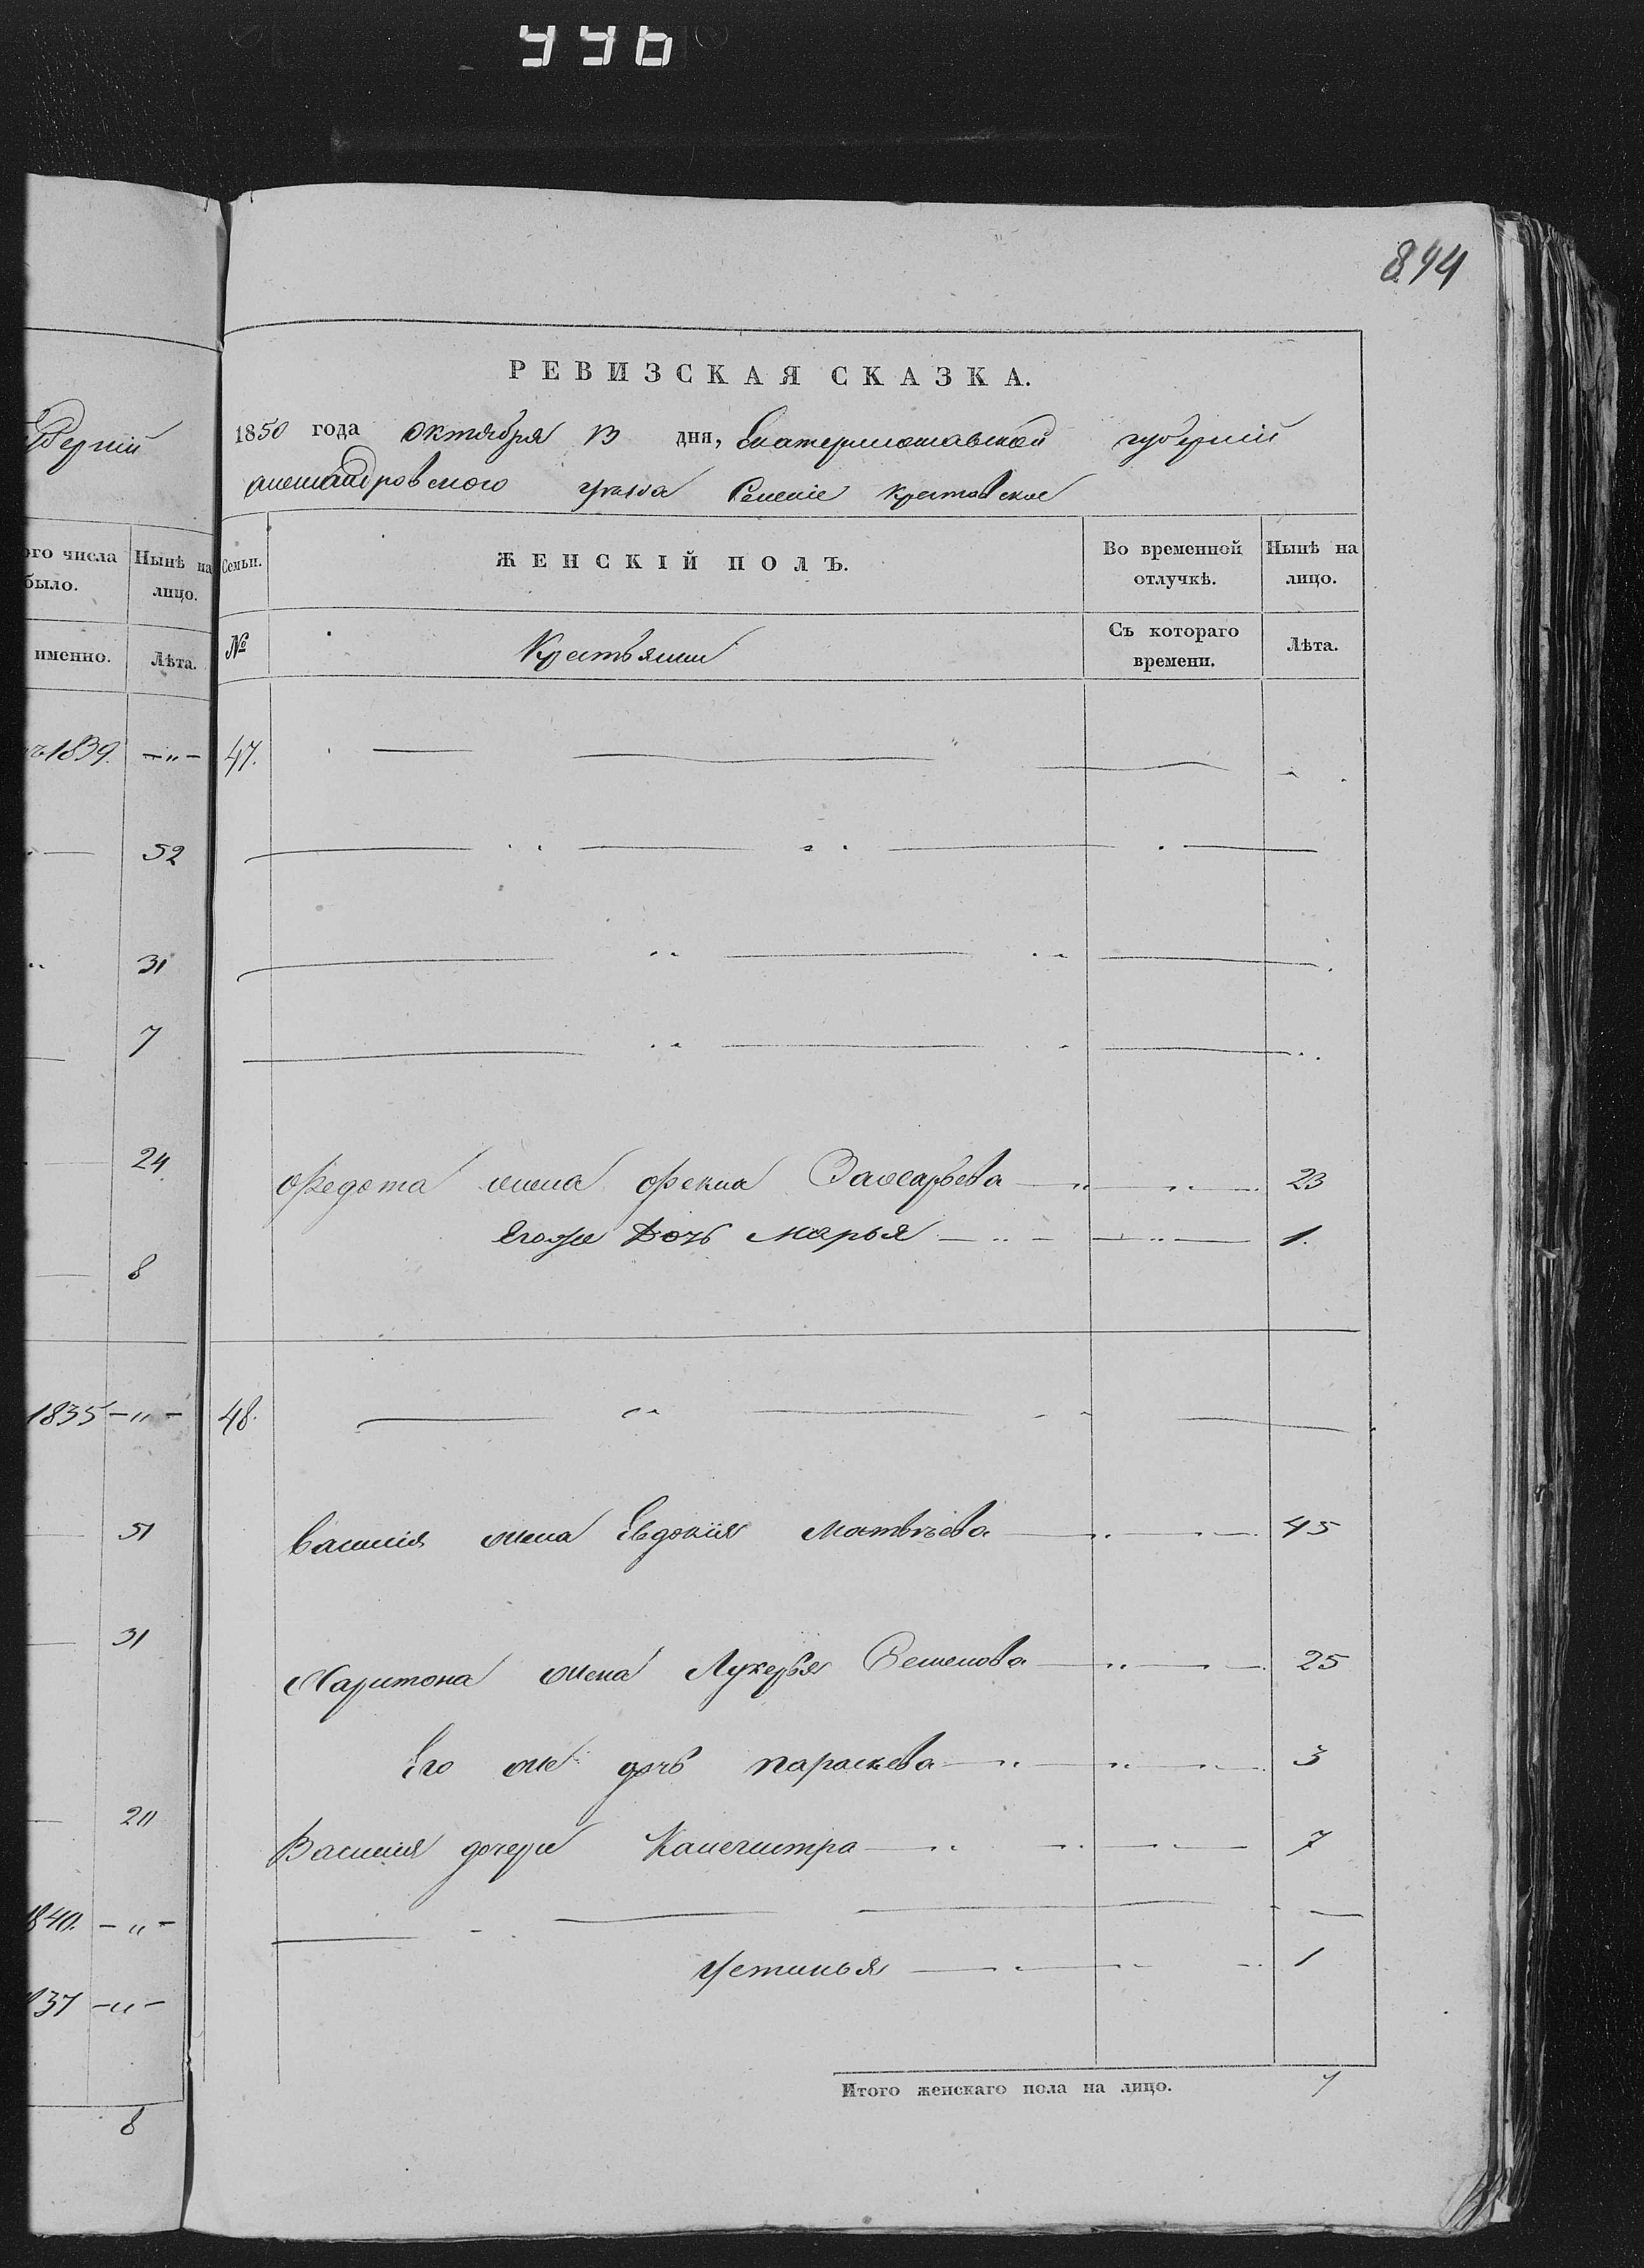 996
894
РЕВИЗСКАЯ СКАЗКА.
1850 года Октября 13 дня, Екатеринославской губерніи
Александровского уезда Селеніе Крестовское
Семьи. ЖЕНСКІЙ ПОЛЪ. Во временной отлучкѣ. Нынѣ на лицо.
№ Крестьяни Съ котораго времени. Лѣта.
47.
Федота жена Фекла Захарьева — „ — „ — 23
Егоже Дочь Марья — „ — — „ — 1.
48.
Василія жена Евдокія Матвѣева — „ — „ — 45
Харитона жена Лукерья Семенова — „ — „ — 25
Его же дочь Параскева — „ — „ — „ — 3
Василия дочери Капечитра — „ — „ — „ — 7
Устинья — „ — „ — „ 1
Итого женскаго пола на лицо. 7
губерніи
ого числа было. Нынѣ на лицо.
именно. Лѣта.
1839. —„—
52
31
7
24.
8
1835 —„—
51
31
20
1840. —„—
837 —„—
8